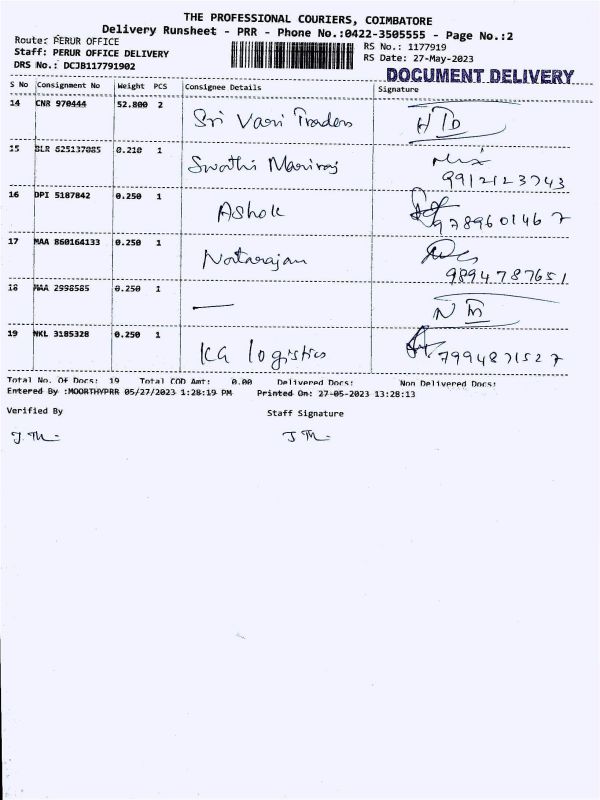 THE PROFESSIONAL COURIERS, COIMBATORE
Delivery Runsheet - PRR - Phone No.:0422-3505555 - Page No.:2
Route: PERUR OFFICE
RS No.: 1177919
Staff: PERUR OFFICE DELIVERY
RS Date: 27-May-2023
DRS No.: DCJB117791902
DOCUMENT DELIVERY
S No Consignment No Weight PCS Consignee Details Signature
14 CNR 970444 52.800 2 Sri Vari Traders
15 BLR 625137085 0.210 1 Swathi Mariraj
9912123743
16 DPI 5187842 0.250 1 Ashok 9789601467
17 MAA 860164133 0.250 1 Natarajan
9894787651
18 MAA 2998585 0.250 1 —
19 NKL 3185328 0.250 1 KG logistics 7994871527
Total No. Of Docs: 19 Total COD Amt: 0.00 Delivered Docs: Non Delivered Docs:
Entered By :MOORTHYPRR 05/27/2023 1:28:19 PM Printed On: 27-05-2023 13:28:13
Verified By Staff Signature